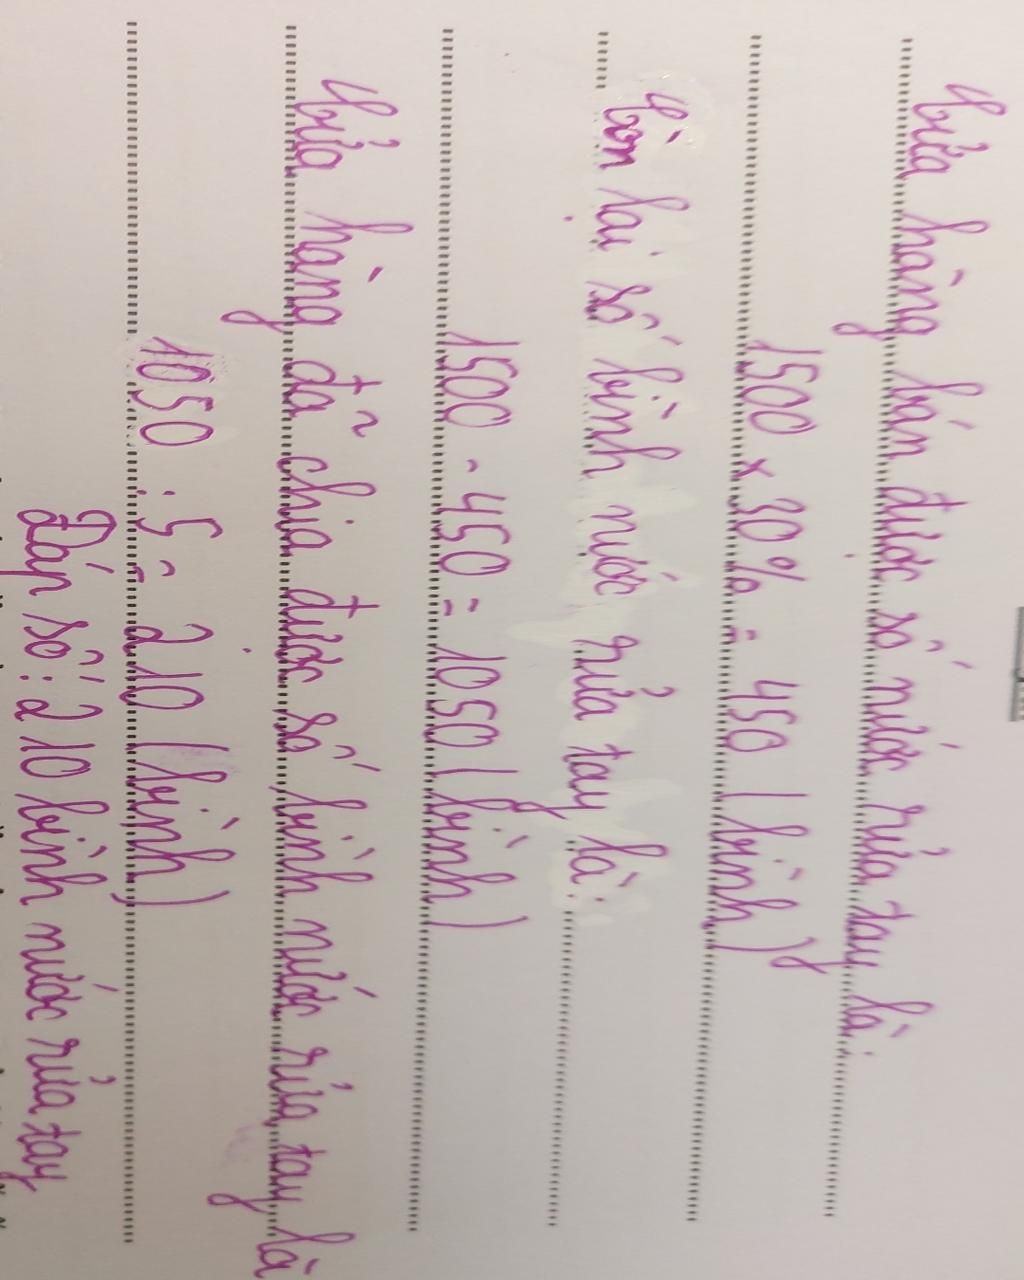 Cửa hàng bán được số nước rửa tay là:
1500 x 30% = 450 (bình)
Còn lại số bình nước rửa tay là:
1500 - 450 = 1050 (bình)
Cửa hàng đã chia được số bình nước rửa tay là
1050 : 5 = 210 (bình)
Đáp số: 210 bình nước rửa tay